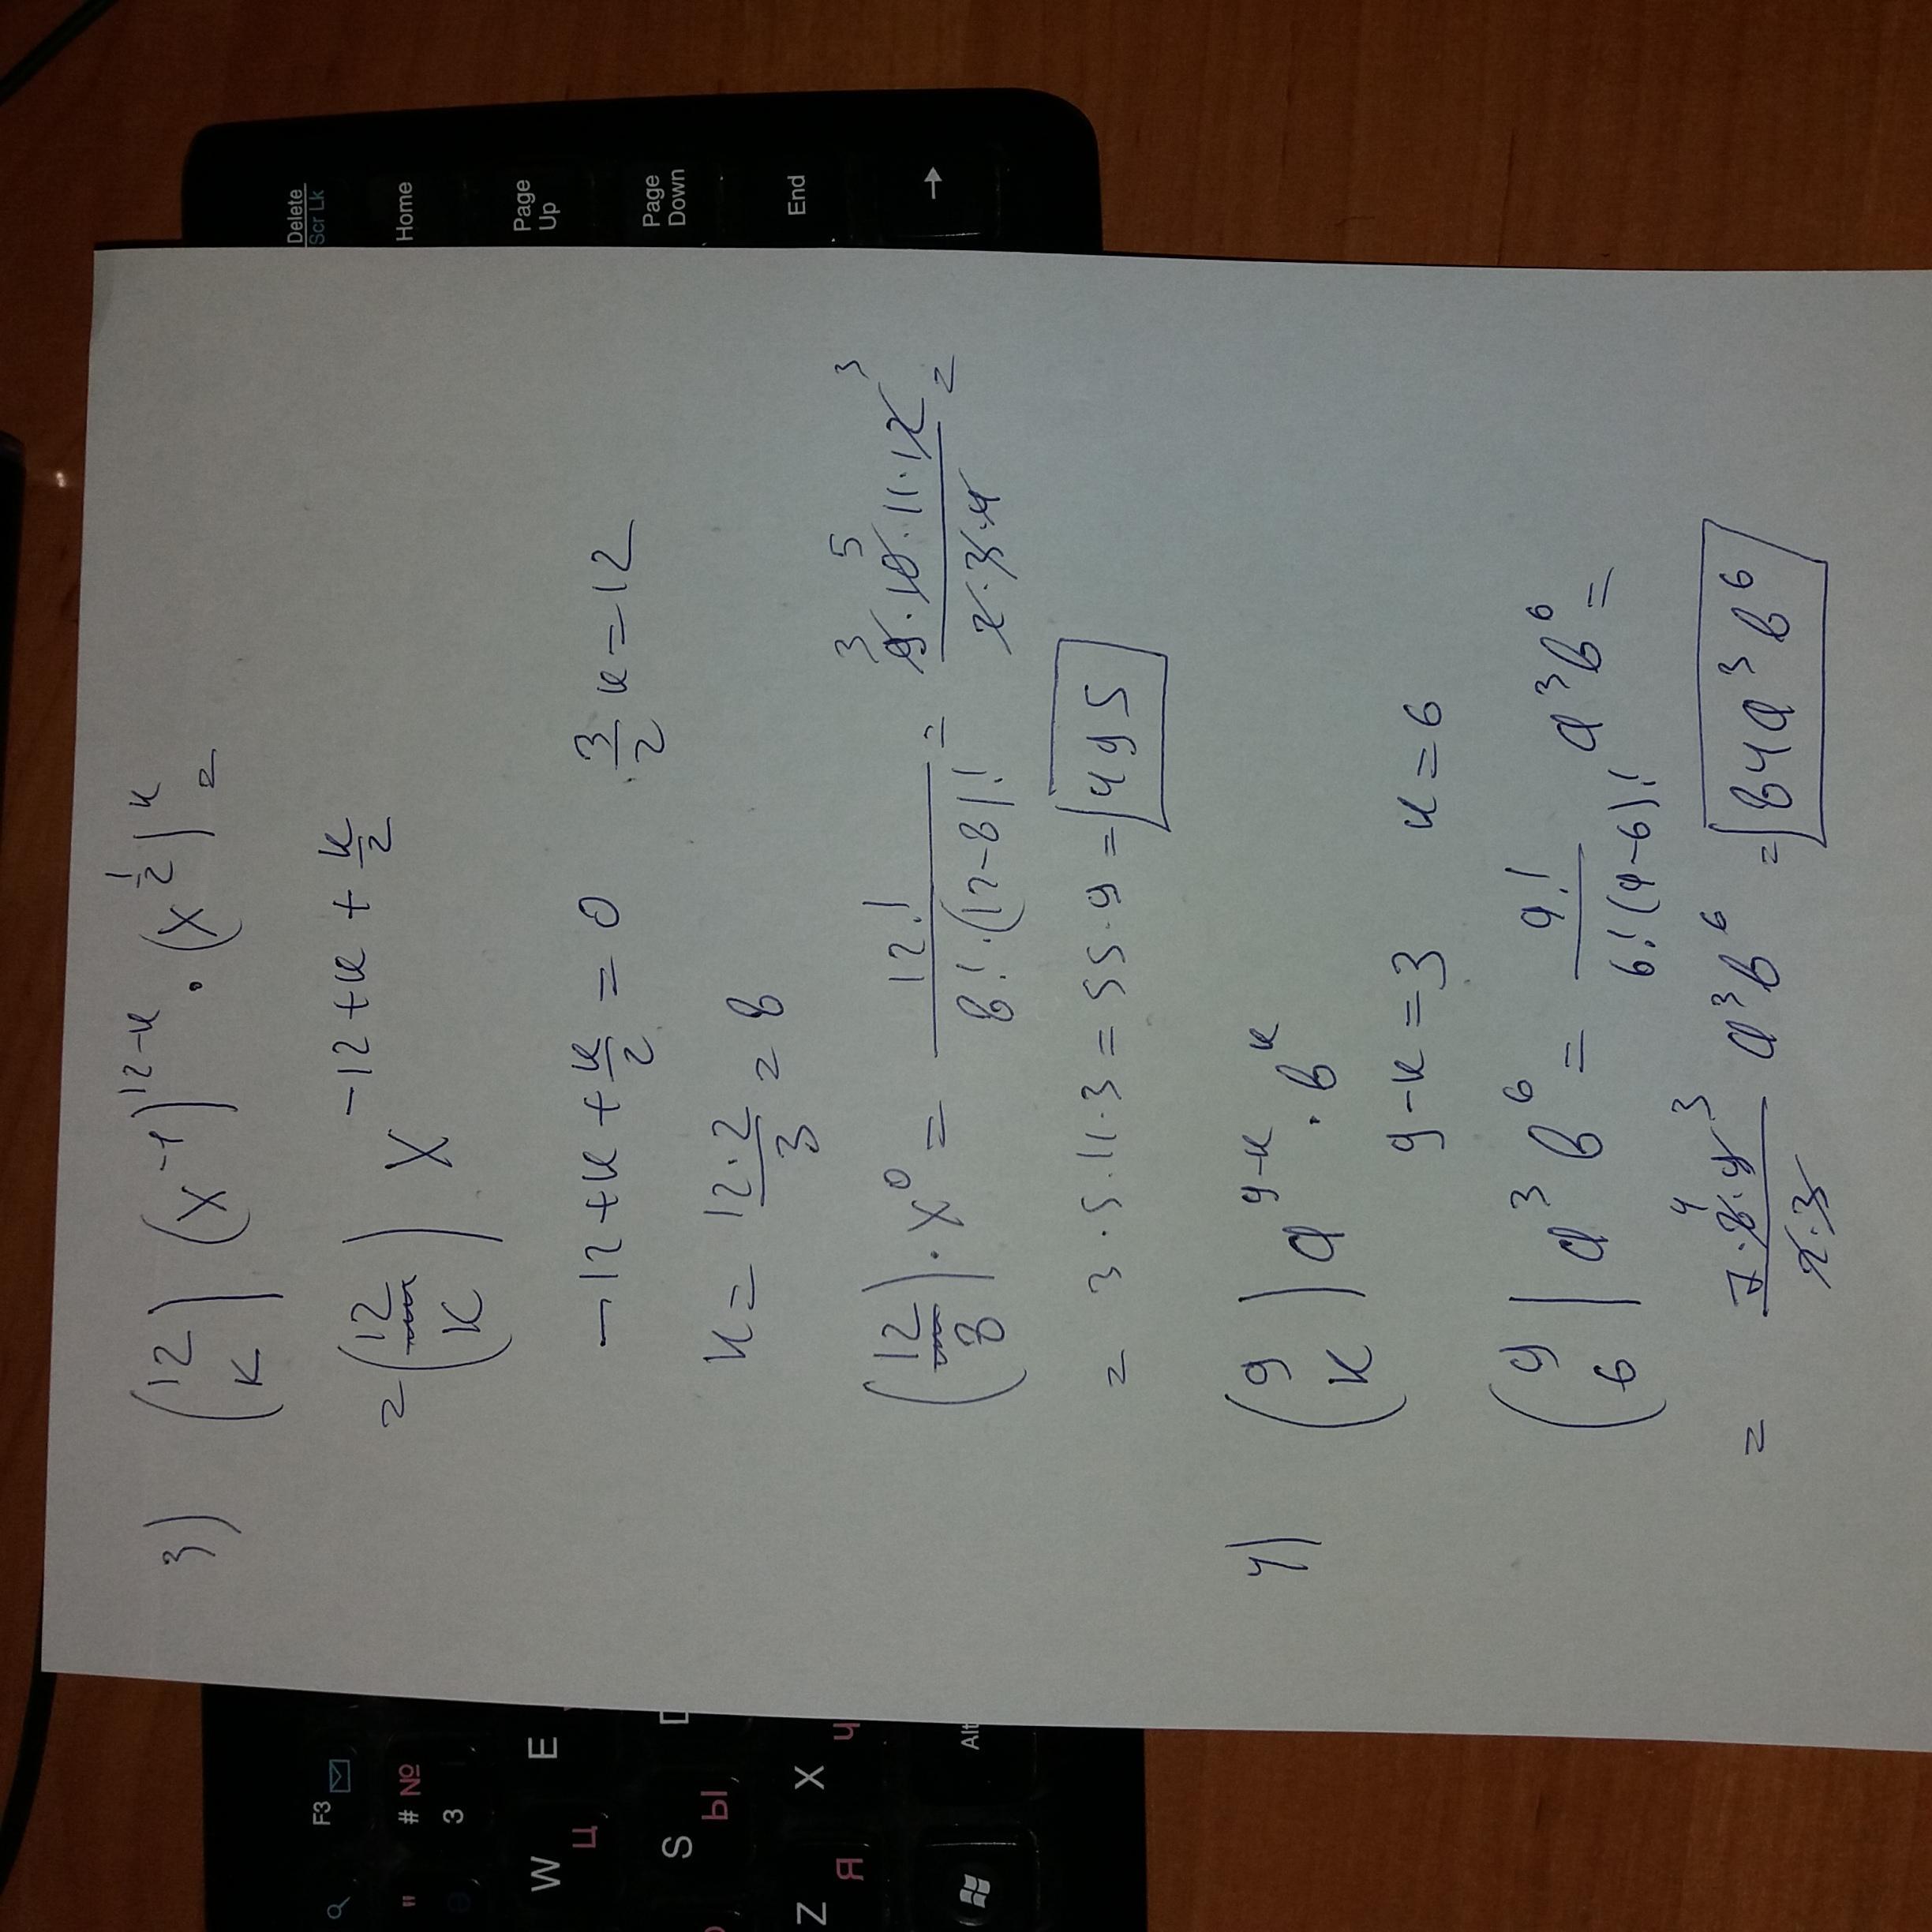 3) (12 k) (x^-1)^12-k · (x^1/2)^k =
= (12 k) x^-12+k+k/2
-12+k+k/2 = 0 · 3/2 k = 12
k = 12·2/3 = 8
(12 8) · x^0 = 12!/8!·(12-8)! = 9·10·11·12/2·3·4 = 3 5 3
= 3·5·11·3 = 55·9 = 495
4) (9 k) a^9-k · b^k
9-k = 3 k = 6
(9 6) a^3 b^6 = 9!/6!(9-6)! a^3 b^6 =
= 7·8·9/2·3 4 3 a^3 b^6 = 84a^3 b^6
Delete
Scr Lk
Home
Page
Up
Page
Down
End
→
F3
# №
" 3
W Ц E
S Ы D
Z Я X Ч
Alt